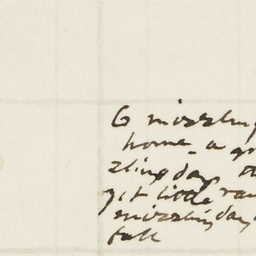 6 mizzling
home - a
zling day
yet little
mizzling day
fall